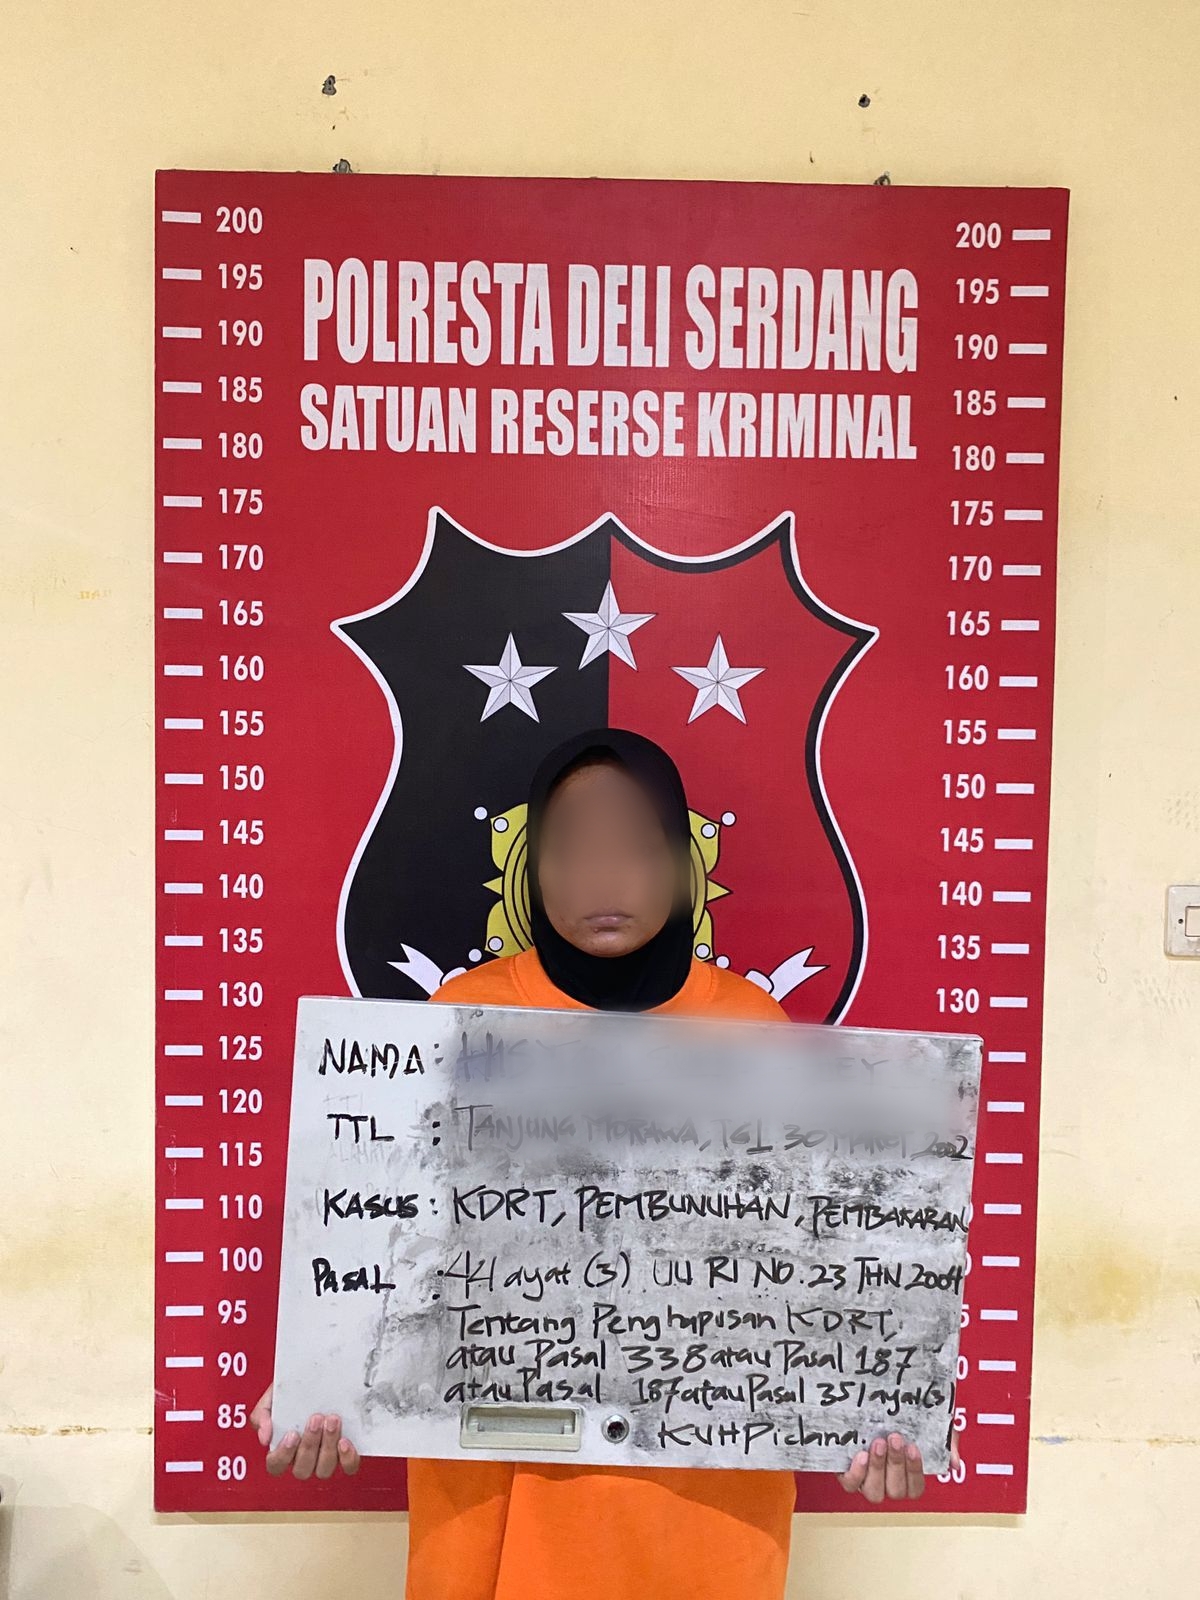 POLRESTA DELI SERDANG
SATUAN RESERSE KRIMINAL
200 200
195 195
190 190
185 185
180 180
175 175
170 170
165 165
160 160
155 155
150 150
145 145
140 140
135 135
130 130
125
120
115
110
100
95
90
85
80
NAMA :
TTL : TANJUNG MORAWA, 2002
KASUS : KDRT, PEMBUNUHAN, PEMBAKARAN
PASAL : 44 ayat (3) UU RI NO. 23 THN 2004
Tentang Penghapusan KDRT,
atau Pasal 338 atau Pasal 187
atau Pasal 187 atau Pasal 351 ayat (3)
KUHPidana.